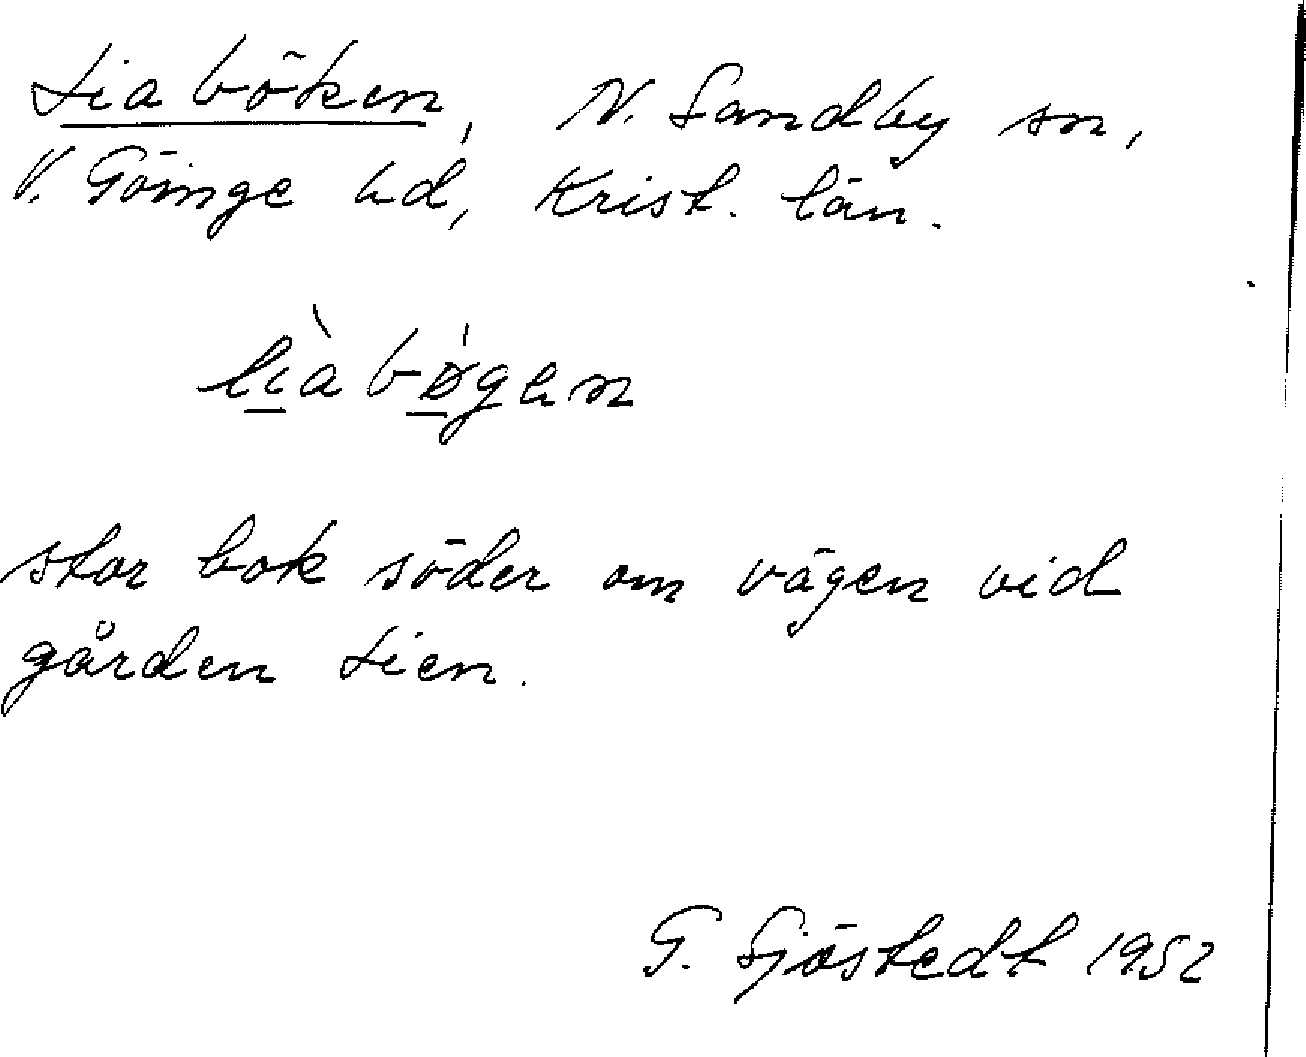 Liaböken, N. Sandby sn,
V. Göinge hd, Krist. län.
lìabø̀gen
stor bok söder om vägen vid
gården Lien.
G. Sjöstedt 1952